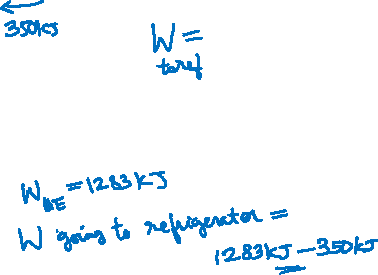 350kJ
W =
to ref
W HE = 1283 kJ
W going to refrigerator =
1283kJ - 350kJ